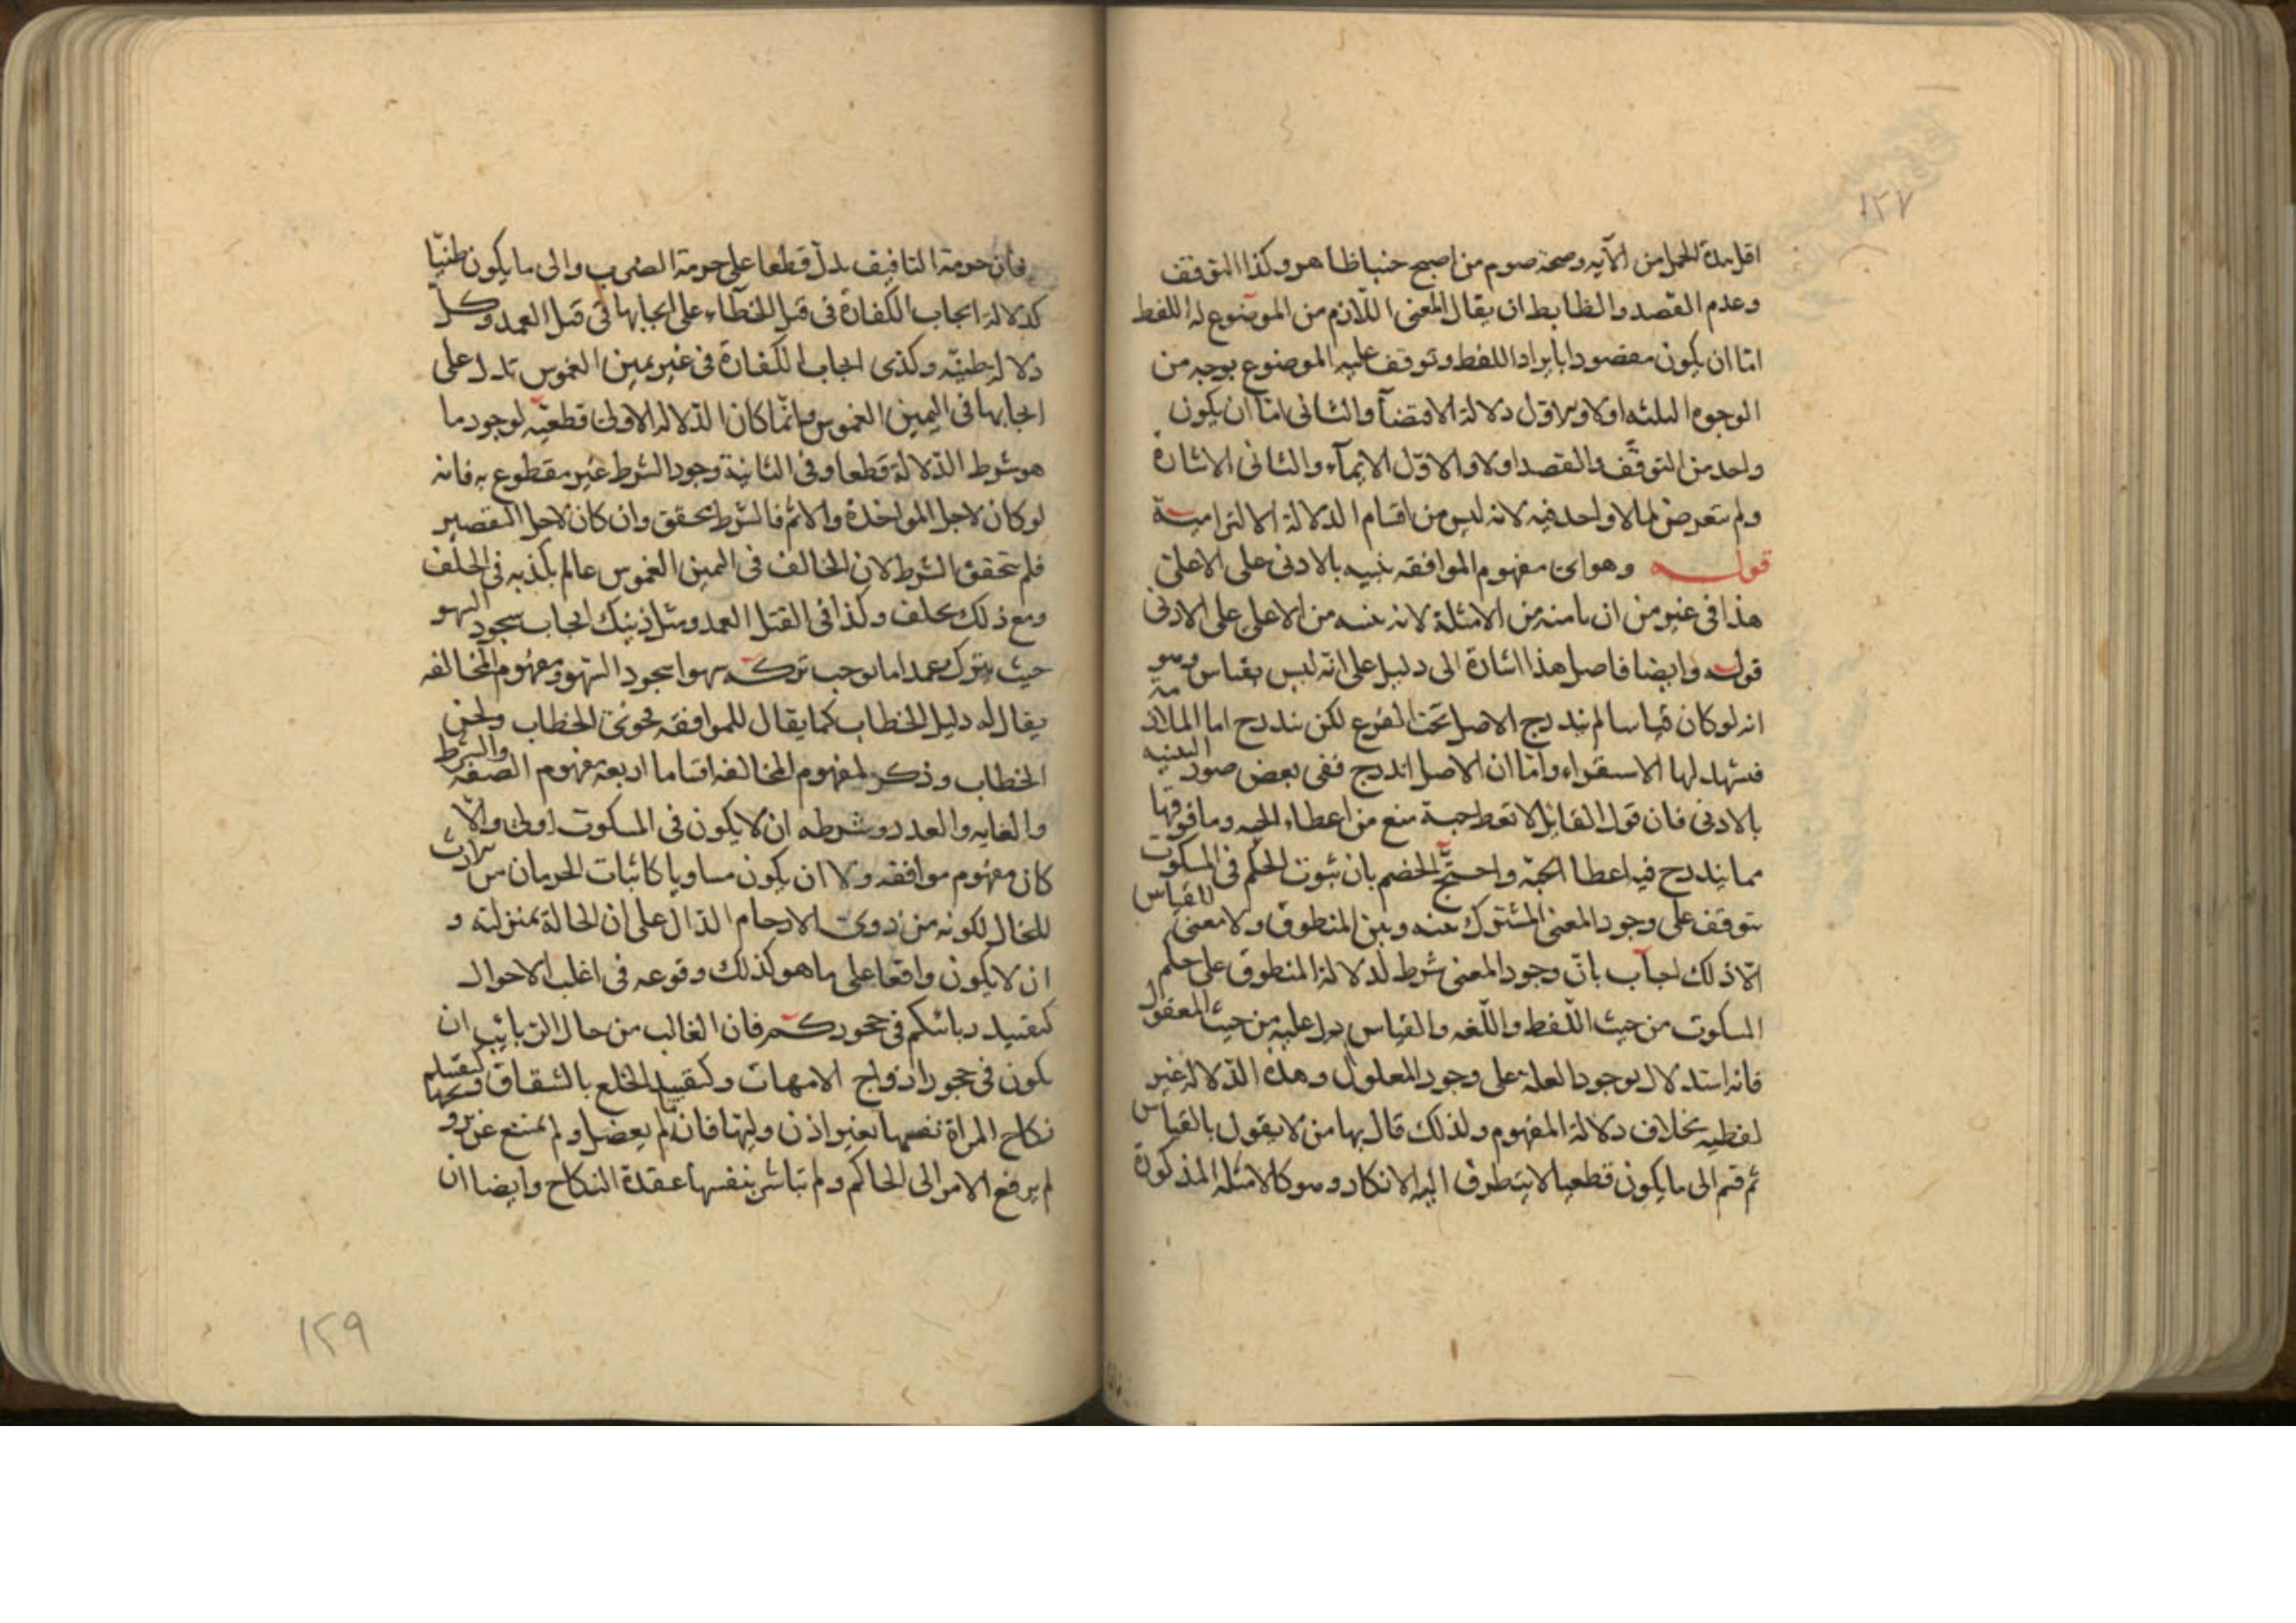 ١٢٧
اقل مدة الحمل من الآيه وصحة صوم من اصبح جنبا ظاهر وكذا التوقف
وعدم القصد والظابط ان يقال المعنى اللازم من الموضوع له اللفظ
امّا ان يكون مقصودا بايراد اللفظ وتوقف عليه الموضوع بوجه من
الوجوه الثلثه اولا والاول دلالة الاقتضآ والثانى امّا ان يكون
واحد من التوقّف والقصد اولا والاوّل الايمآء والثانى الاشارة
ولم يتعرض لما لا واحد فيه لانه ليس من اقسام الدلالة الالتزامية
قوله وهو اى مفهوم الموافقه تنبيه بالادنى على الاعلى
هذا فى غير من ان تامنه من الامثلة لانه تنبيه من الاعلى على الادنى
قوله وايضا فاصل هذا اشارة الى دليل على انّه ليس بقياس وهو
انه لو كان قياسا لم يندرج الاصل تحت الفرع لكن يندرج اما الملازمة
فيشهد لها الاستقراء وامّا ان الاصل اندرج ففى بعض صور التنبيه
بالادنى فان قول القائل لا تعط حبة منع من اعطاء الحبه وما فوقها
مما يندرج فيه اعطا الحبّه واحتجّ الخصم بان ثبوت الحكم فى المسكوت
يتوقف على وجود المعنى المشترك بينه وبين المنطوق ولا معنى للقياس
الّا ذلك اجاب بانّ وجود المعنى شرط لدلالة المنطوق على حكم
المسكوت من حيث اللّفظ واللّغه والقياس يدل عليه من حيث المعقول
فانه استدلال بوجود العلة على وجود المعلول وهذه الدّلالة غير
لفظيه بخلاف دلالة المفهوم ولذلك قال بها من لا يقول بالقياس
ثم قسم الى ما يكون قطعيا لا يتطرق اليه الانكار وهو كالامثلة المذكورة
فان حرمة التافيف يدلّ قطعا على حرمة الضرب والى ما يكون ظنيّا
كدلالة ايجاب الكفارة فى قتل الخطآء على ايجابها فى قتل العمد وكل
دلالة ظنيّه وكذى ايجاب الكفارة فى غير يمين الغموس تدل على
ايجابها فى اليمين الغموس وانّما كان الدّلالة الاولى قطعيّه لوجود ما
هو شرط الدّلالة قطعا وفى الثانية وجود الشرط غير مقطوع به فانه
لو كان لاجل المواخذة والاثم فالشرط تحقق وان كان لاجل التقصير
فلم يتحقق الشرط لان الحالف فى اليمين الغموس عالم بكذبه فى الحلف
ومع ذلك يحلف وكذا فى القتل العمد ومثل ذينك ايجاب سجود السهو
حيث يترك عمدا ما يوجب تركه سهوا سجود السّهو ومفهوم المخالفه
يقال له دليل الخطاب كما يقال للموافقه فحوى الخطاب ولحن
الخطاب وذكر لمفهوم المخالفه اقساما اربعة مفهوم الصفة والشرط
والغايه والعدد وشرطه ان لا يكون فى المسكوت اولى والّا
كان مفهوم موافقه ولا ان يكون مساويا كاثبات الحرمان من ميراث
للخال لكونه من ذوى الارحام الدّال على ان الخالة بمنزلته و
ان لا يكون واقعا على ما هو كذلك وقوعه فى اغلب الاحوال
كتقييد ربائبكم فى حجوركم فان الغالب من حال الربايب ان
يكون فى حجور ازواج الامهات وكتقييد الخلع بالشقاق وكتقييد
نكاح المراة نفسها بغير اذن وليّها فانه لم يعضل ولم يمتنع عن
لم يرفع الامر الى الحاكم ولم تباشر بنفسها عقدة النكاح وايضا ان
١٢٩